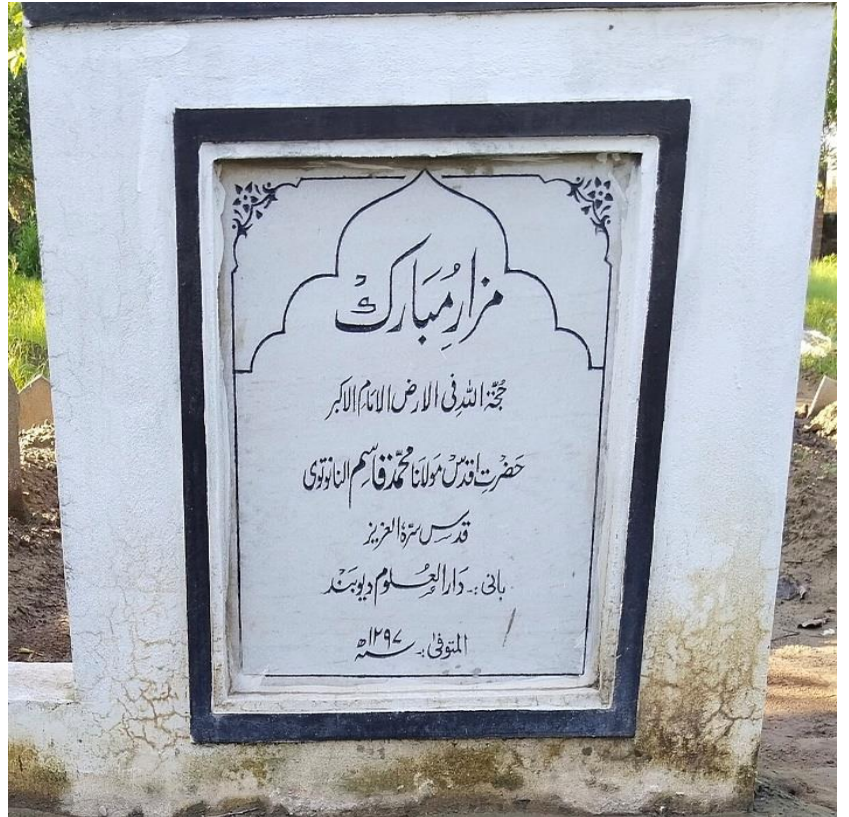 مزارِ مُبَارک
حُجّۃ اللہ فی الارض الامام الاکبر
حَضرتِ اقدس مَولانا محمّد قاسِم النانوتوی
قدس سرّہٗ العزیز
بانی :۔ دَارالعُلوم دیوبَند
المتوفیٰ :۔ سنہ ۱۲۹۷ھ